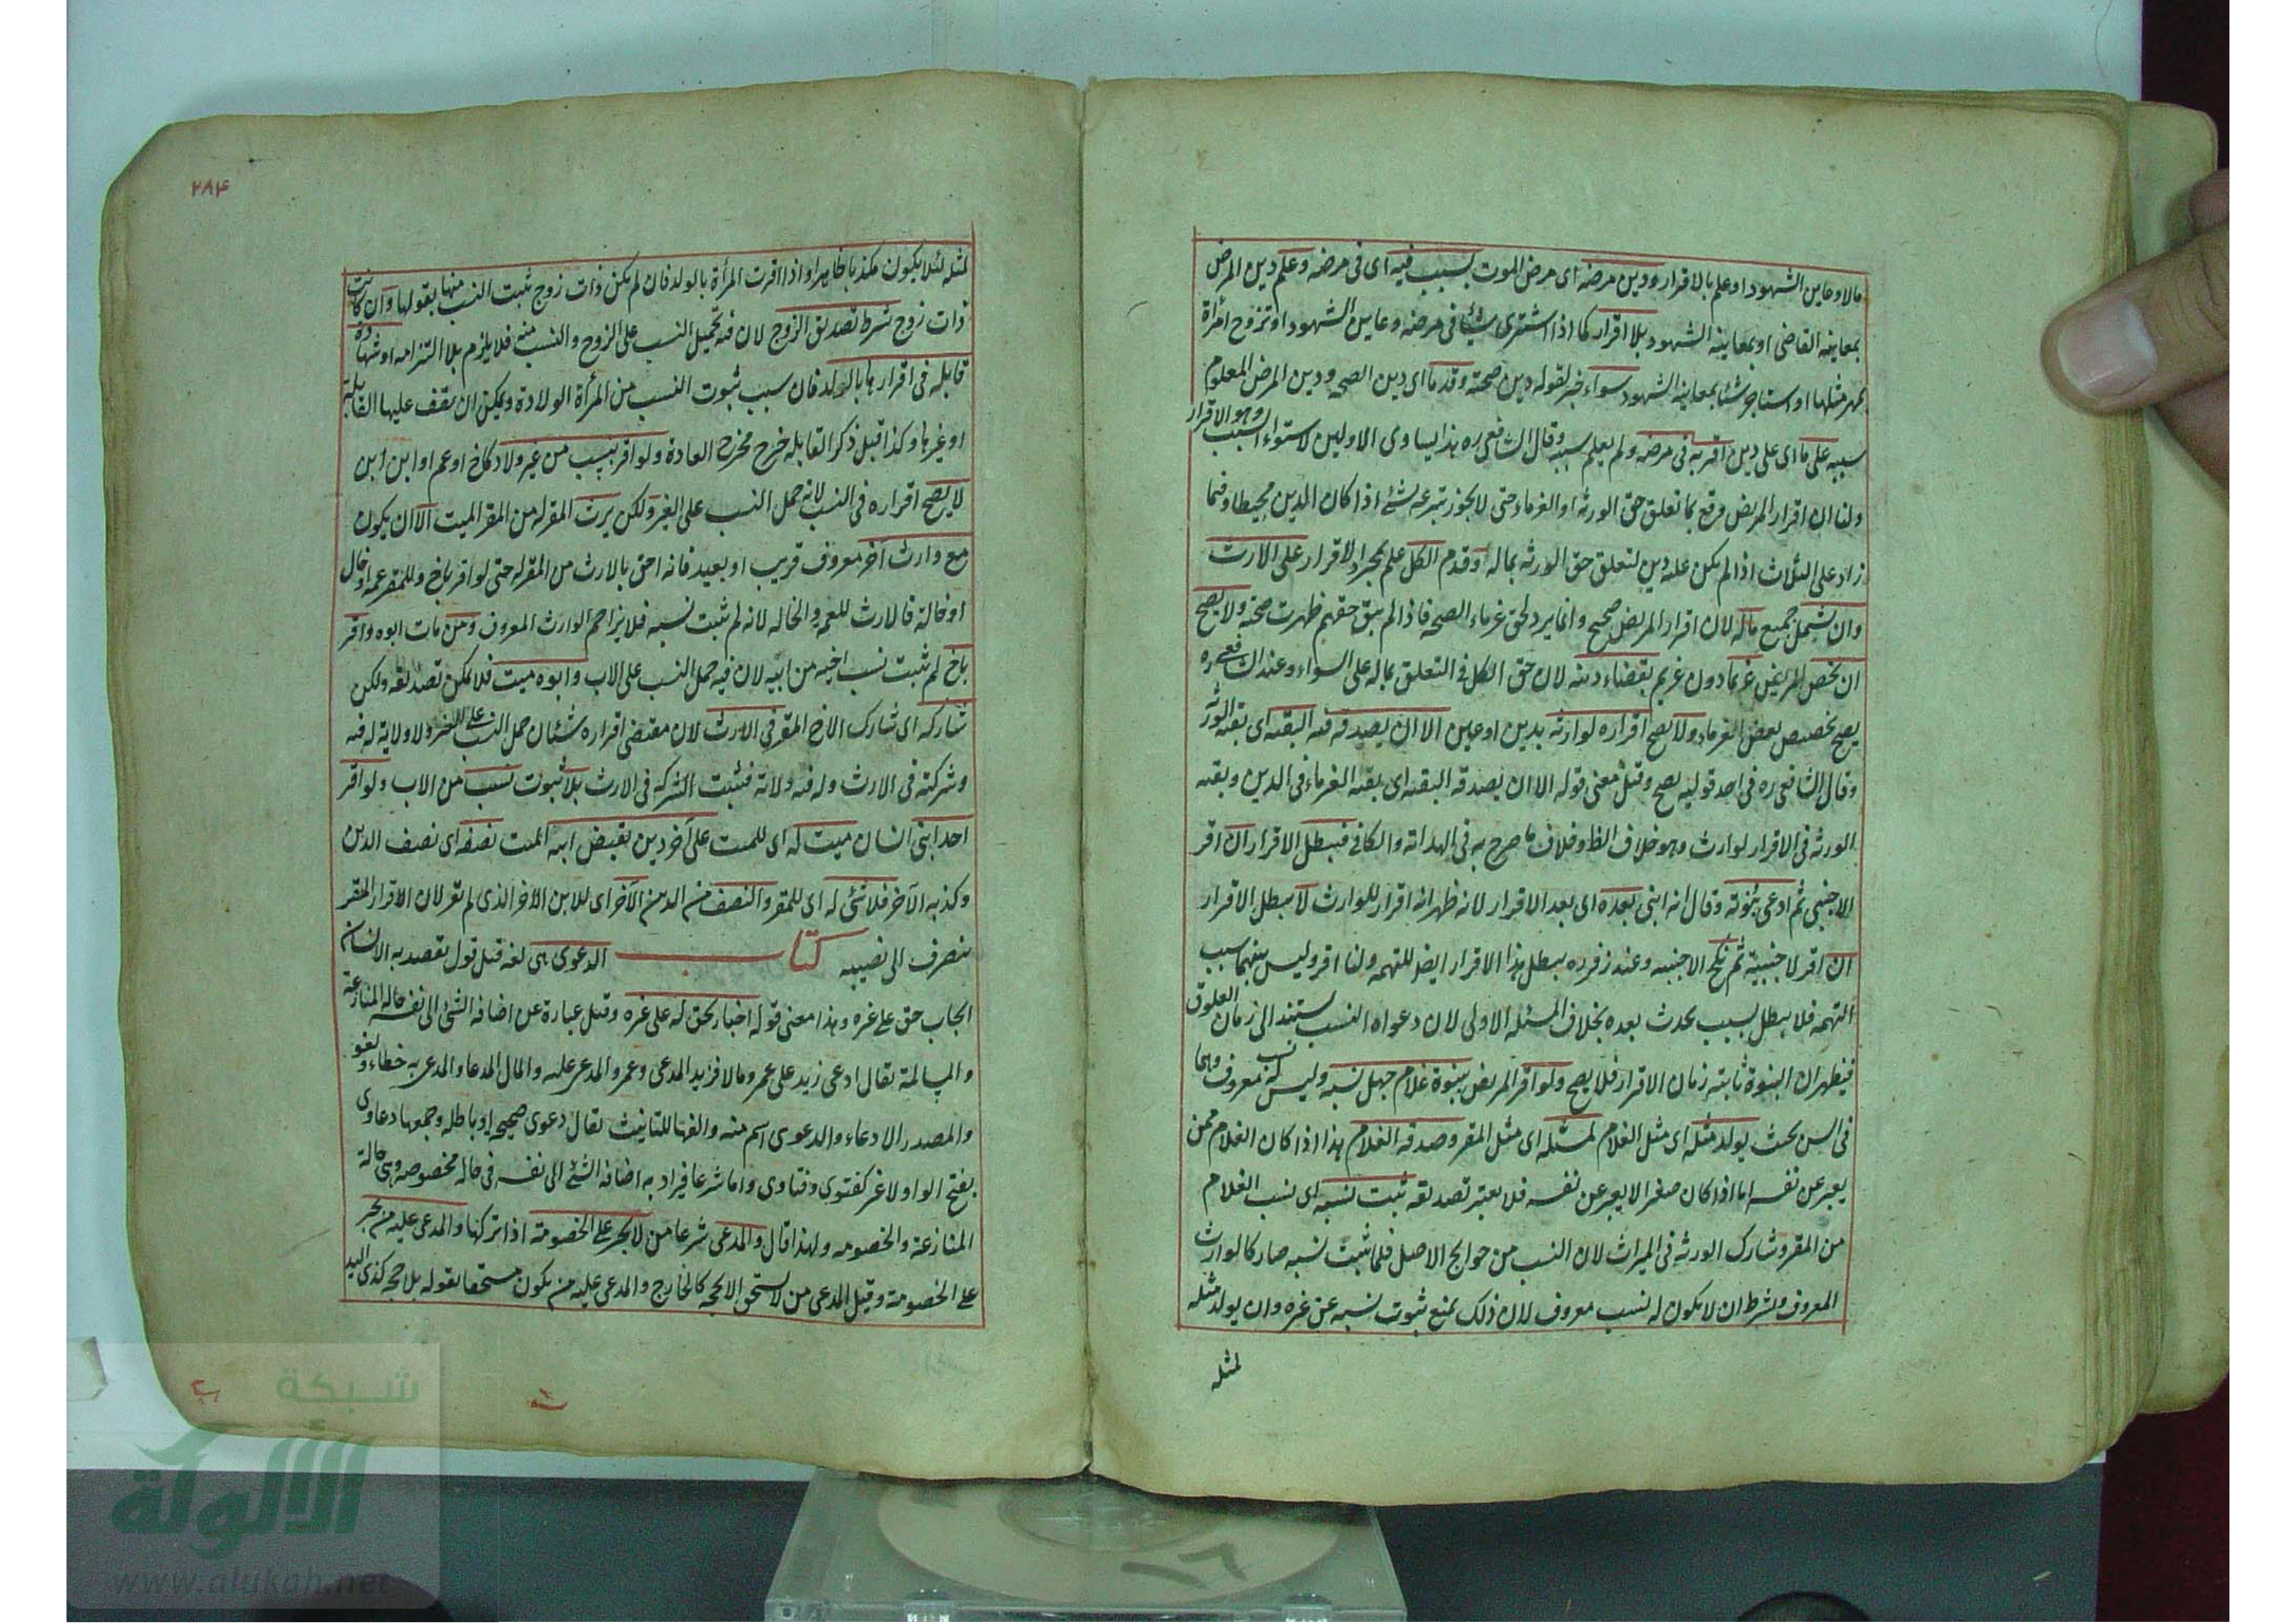 مالا وعاين الشهود او علم بالاقرار ودين مرضه اى مرض الموت بسبب فيه اى فى مرضه وعلم دين المرض
بمعاينة القاضى او بمعاينة الشهود بلا اقرار كما اذا اشترى شيئا فى مرضه وعاين الشهود او تزوج امرأة
بمهر مثلها او استاجر شيئا بمعاينة الشهود سواء خبر لقوله دين صحته وقد ما اى دين الصحة ودين المرض المعلوم
سببه على ما اى على دين اقر به فى مرضه ولم يعلم سببه وقال الشافعى ره هذا يساوى الاولين لاستواء السبب وهو الاقرار
ولنا ان اقرار المريض وقع بما تعلق حق الورثة او الغرماء حتى لا يجوز تبرعه بشئ اذا كان الدين محيطا وفيما
زاد على الثلاث اذا لم يكن عليه دين لتعلق حق الورثة بماله وقدم الكل علم بمجرد الاقرار على الارث
وان يشمل جميع ماله لان اقرار المريض صحيح وانما يرد لحق غرماء الصحة فاذا لم يبق حقهم ظهرت صحته ولا يصح
ان يخص المريض غريما دون غريم بقضاء دينه لان حق الكل فى التعلق بماله على السواء وعند الشافعى ره
يصح تخصيص بعض الغرماء ولا يصح اقراره لوارثه بدين او عين الا ان يصدقه فيه البقية اى بقية الورثة
وقال الشافعى ره فى احد قوليه يصح وقيل معنى قوله الا ان يصدقه البقية اى بقية الغرماء فى الدين وبقية
الورثة فى الاقرار لوارث وهو خلاف الظ وخلاف ما صرح به فى الهداية والكافى فيبطل الاقرار ان اقر
لاجنبى ثم ادعى بنوته وقال انه ابنى بعده اى بعد الاقرار لانه ظهر انه اقرار للوارث لا يبطل الاقرار
ان اقر لاجنبية ثم نكح الاجنبية وعند زفر ره يبطل هذا الاقرار ايض للتهمة ولنا اقر وليس بينهما سبب
التهمة فلا يبطل بسبب يحدث بعده بخلاف المسئلة الاولى لان دعواه النسب يستند الى زمان العلوق
فيظهر ان البنوة ثابتة زمان الاقرار فلا يصح ولو اقر المريض ببنوة غلام جهل نسبه وليس له نسب معروف وهما
فى السن بحيث يولد مثله اى مثل الغلام لمثله اى مثل المقر وصدقه الغلام هذا اذا كان الغلام ممن
يعبر عن نفسه اما اذا كان صغيرا لا يعبر عن نفسه فلا يعتبر تصديقه ثبت نسبه اى نسب الغلام
من المقر وشارك الورثة فى الميراث لان النسب من حوايج الاصل فلما ثبت نسبه صار كالوارث
المعروف وشرط ان لا يكون له نسب معروف لان ذلك يمنع ثبوت نسبه عن غيره وان يولد مثله
لمثله
٢٨٤
لمثله لئلا يكون مكذبا ظاهرا واذا اقرت المرأة بالولد فان لم يكن ذات زوج ثبت النسب منها بقولها وان كانت
ذات زوج شرط تصديق الزوج لان فيه تحميل النسب على الزوج والنسب منه فلا يلزم بلا التزامه او شهادة
قابلة فى اقرارها بالولد فان سبب ثبوت النسب من المرأة الولادة ويمكن ان يقف عليها القابلة
او غيرها وكذا قيل ذكر القابلة خرج مخرج العادة ولو اقر بنسب من غير ولاد كاخ او عم او ابن ابن
لا يصح اقراره فى النسب لانه حمل النسب على الغير ولكن يرث المقر له من المقر الميت الا ان يكون
مع وارث آخر معروف قريب او بعيد فانه احق بالارث من المقر له حتى لو اقر باخ وللمقر عمه او خال
او خالة فالارث للعمة والخالة لانه لم يثبت نسبه فلا يزاحم الوارث المعروف ومن مات ابوه واقر
باخ لم يثبت نسب اخيه من ابيه لان فيه حمل النسب على الاب وابوه ميت فلا يمكن تصديقه ولكن
شاركه اى شارك الاخ المقر فى الارث لان مقتضى اقراره شيئان حمل النسب على الغير ولا ولاية له فيه
وشركته فى الارث وله فيه ولاية فيثبت الشركة فى الارث بلا ثبوت نسب من الاب ولو اقر
احد ابنى انسان ميت له اى للميت على آخر دين بقبض ابيه الميت نصفه اى نصف الدين
وكذبه الآخر فلا شئ له اى للمقر والنصف من الدين الآخر اى للابن الآخر الذى لم يقر لان الاقرار المقر
ينصرف الى نصيبه كتاب الدعوى هى لغة قيل قول يقصد به الانسان
ايجاب حق على غيره وهذا معنى قوله اخبار بحق له على غيره وقيل عبارة عن اضافة الشئ الى نفسه حالة المنازعة
والمسالمة يقال ادعى زيد على عمرو مالا فزيد المدعى وعمرو المدعى عليه والمال المدعا والمدعى به خطاء ولغو
والمصدر الادعاء والدعوى اسم منه والفها للتانيث يقال دعوى صحيحة او باطلة وجمعها دعاوى
بفتح الواو لا غير كفتوى وفتاوى واما شرعا فيراد به اضافة الشئ الى نفسه فى حالة مخصوصة وهى حالة
المنازعة والخصومة ولهذا قال والمدعى شرعا من لا يجبر على الخصومة اذا تركها والمدعى عليه من يجبر
على الخصومة وقيل المدعى من لا يستحق الا بحجة كالخارج والمدعى عليه من يكون مستحقا بقوله بلا حجة كذى اليد
شبكة
الألوكة
www.alukah.net